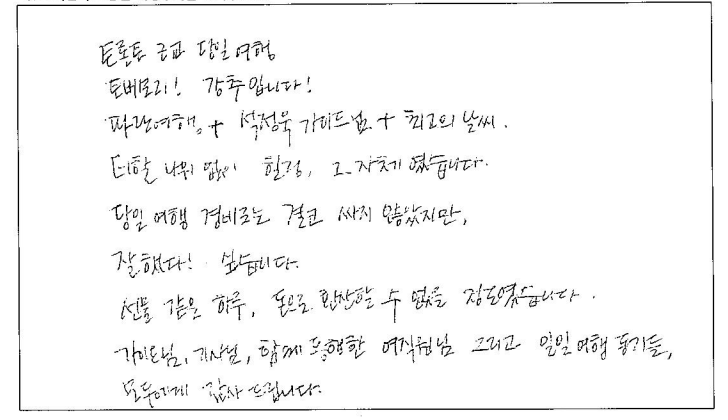 토론토 근교 당일 여행
토버모리! 강추입니다!
파란여행 + 석정욱 가이드님 + 최고의 날씨.
더할 나위 없이 힐링, 그 자체였습니다.
당일 여행 경비로는 결코 싸지 않았지만,
잘했다! 싶습니다.
선물 같은 하루, 돈으로 환산할 수 없을 정도였습니다.
가이드님, 기사님, 함께 동행한 여직원님 그리고 일일 여행 동기들,
모두에게 감사 드립니다.